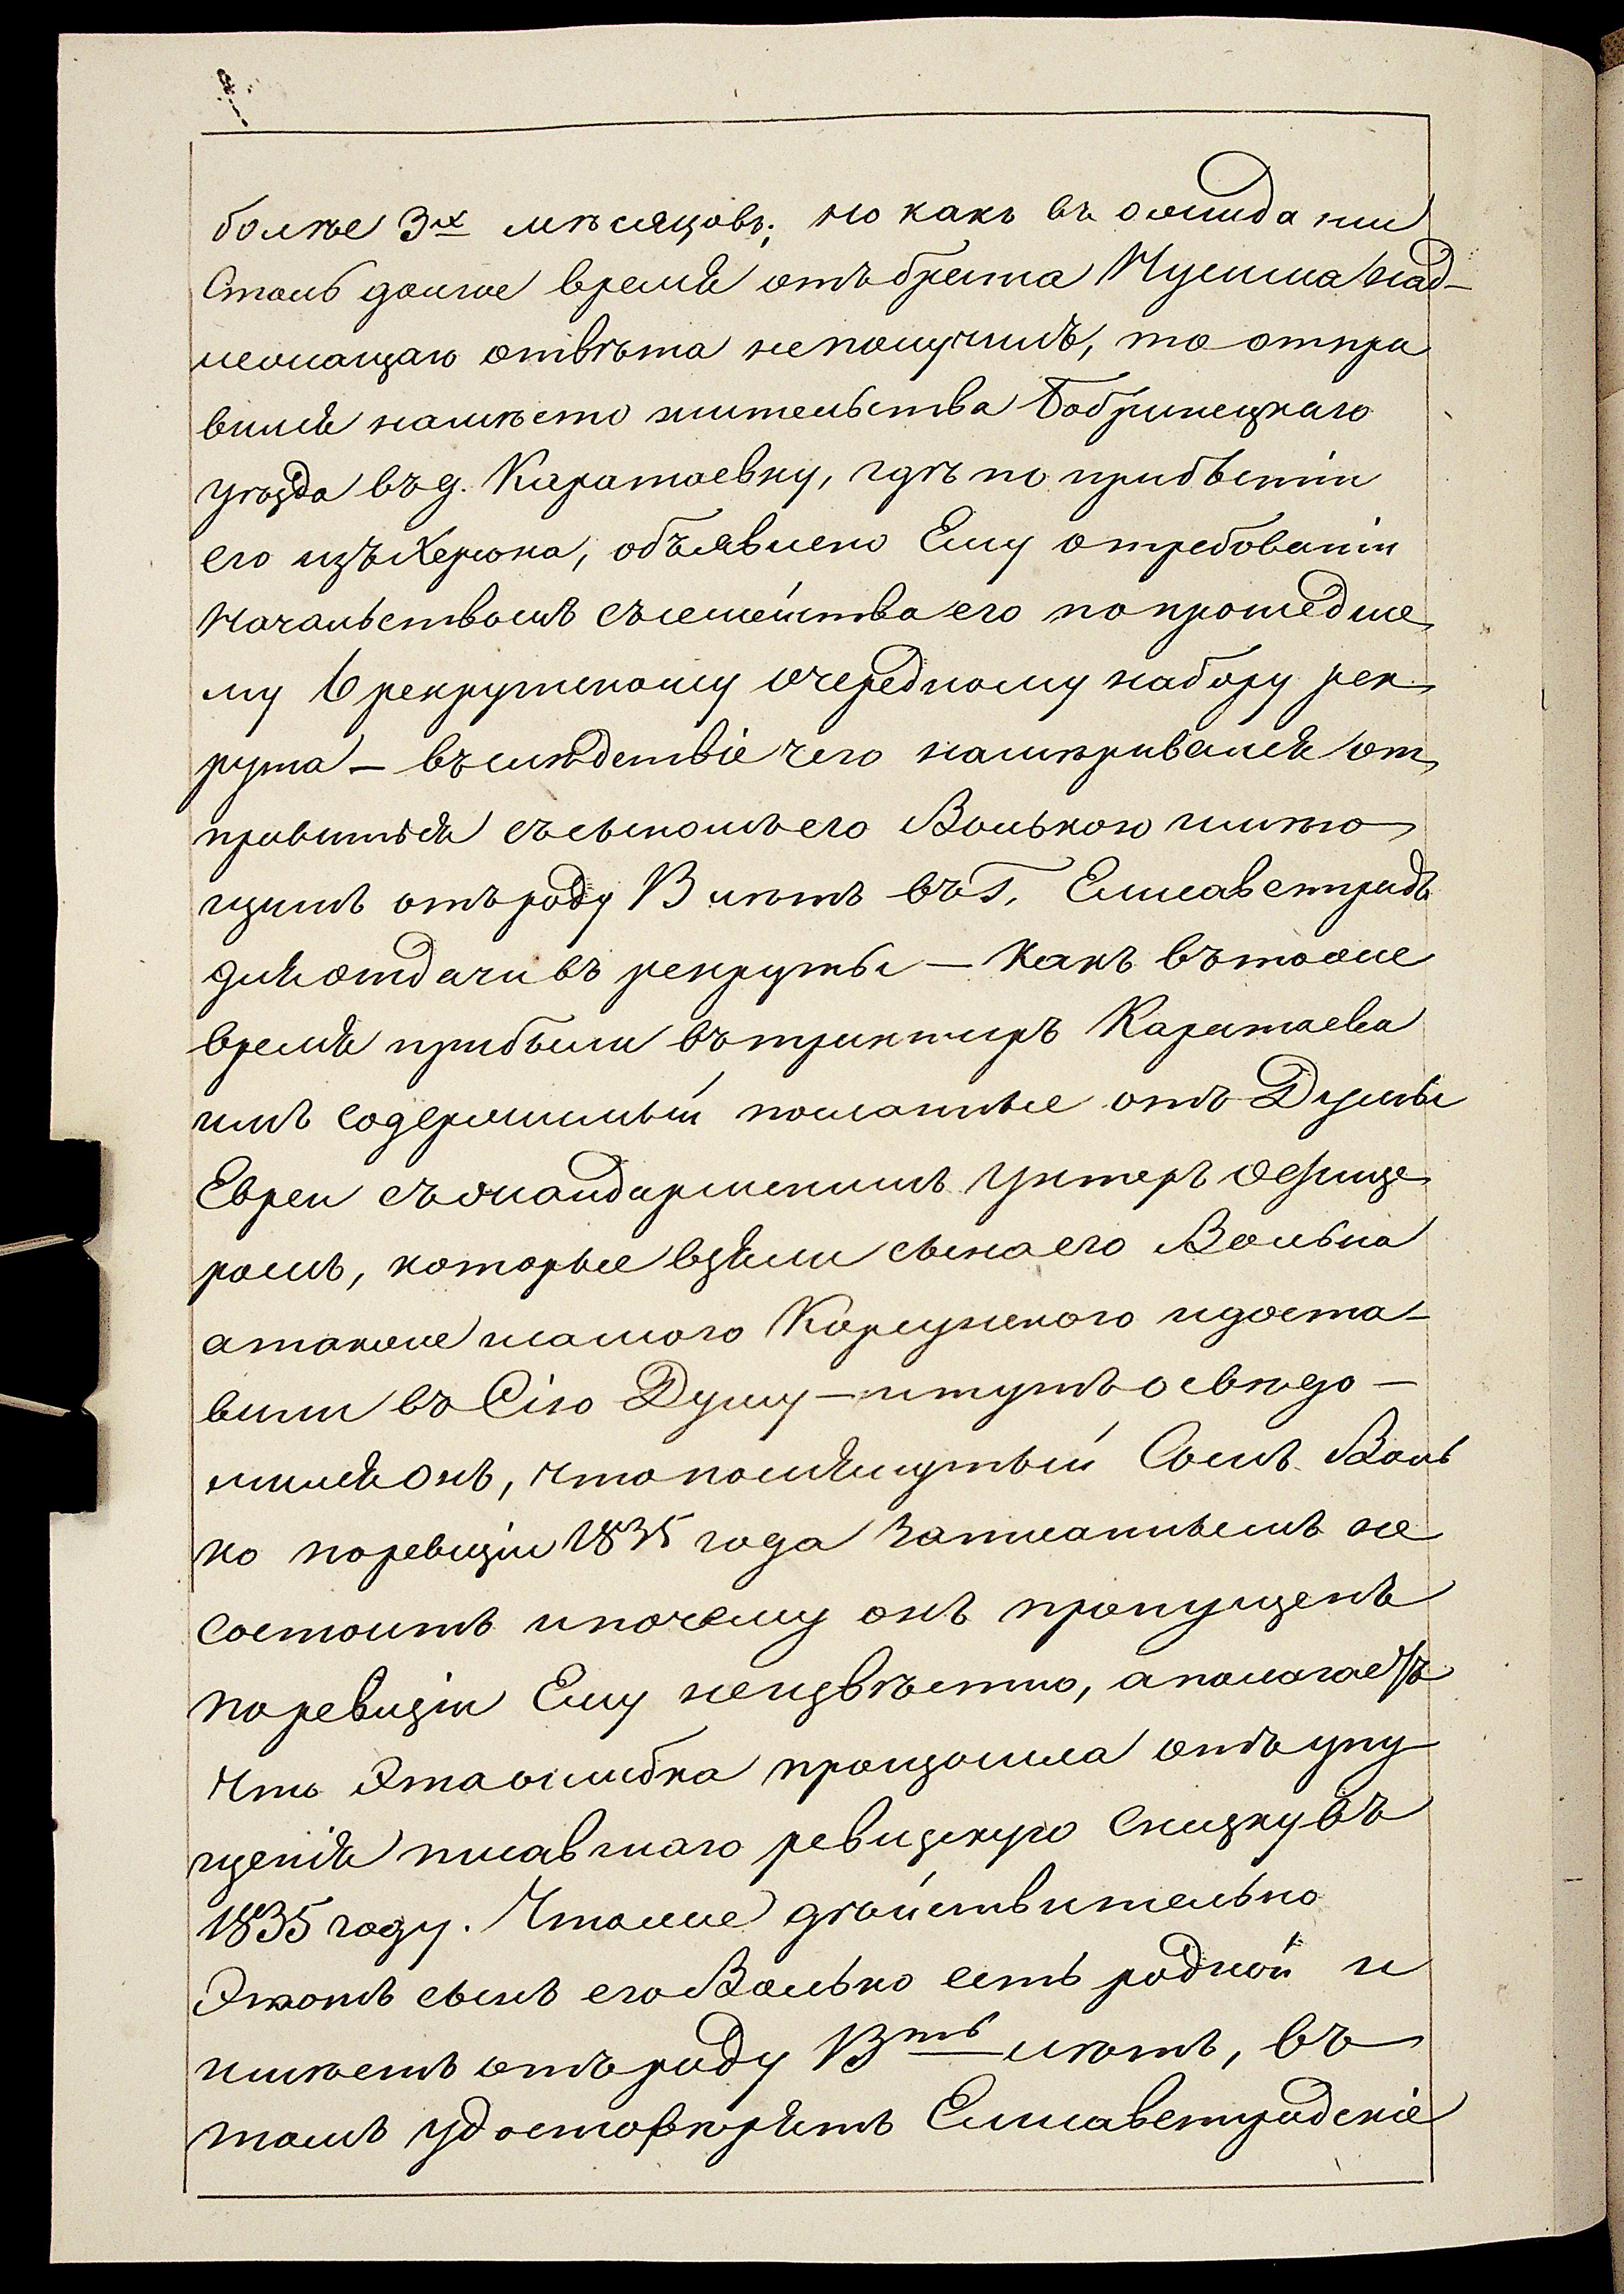 более 3х мѣсяцовъ; но какъ въ ожида нии
столь долгое время отъ брата Мусина над-
лежащаго отвѣта неполучилъ, то отпра
вился намѣсто жительства Бобринецкаго
уѣзда въ д. Каратаевку, гдѣ по прибытіи
его изъ Херсона, объявлено Ему отребованіи
Начальствомъ съ семейства его по прошедше
му 6 рекрутскому очередному набору рек
рута — въ слѣдствіе чего намѣривался от
правиться съ сыномъ его Волькою имѣю
щимъ отъ роду 13 лѣтъ въ Г. Елисаветградъ
для отдачи въ рекруты — какъ въ тоже
время прибыли въ трактиръ Каратаева
имъ содержимый посланные отъ Думы
Евреи съ жандармскимъ унтеръ офице
ромъ, которые взяли сына его Волька
а также и самого Корсунского и доста-
вили въ Сію Думу — и тутъ освѣдо-
мился онъ, что помянутый Сынъ Воль
ко по ревизіи 1835 года Записаннымъ не
состоитъ и почему онъ пропущенъ
по ревизіи Ему неизвѣстно, а полагаетъ
Что Эта ошибка произошла отъ упу
щенія писавшаго ревизскую Сказку въ
1835 году. Что же дѣйствительно
Этотъ сынъ его Волько есть родной и
имѣетъ отъ роду 13ть лѣтъ, въ
томъ удостовѣрятъ Елисаветградскіе